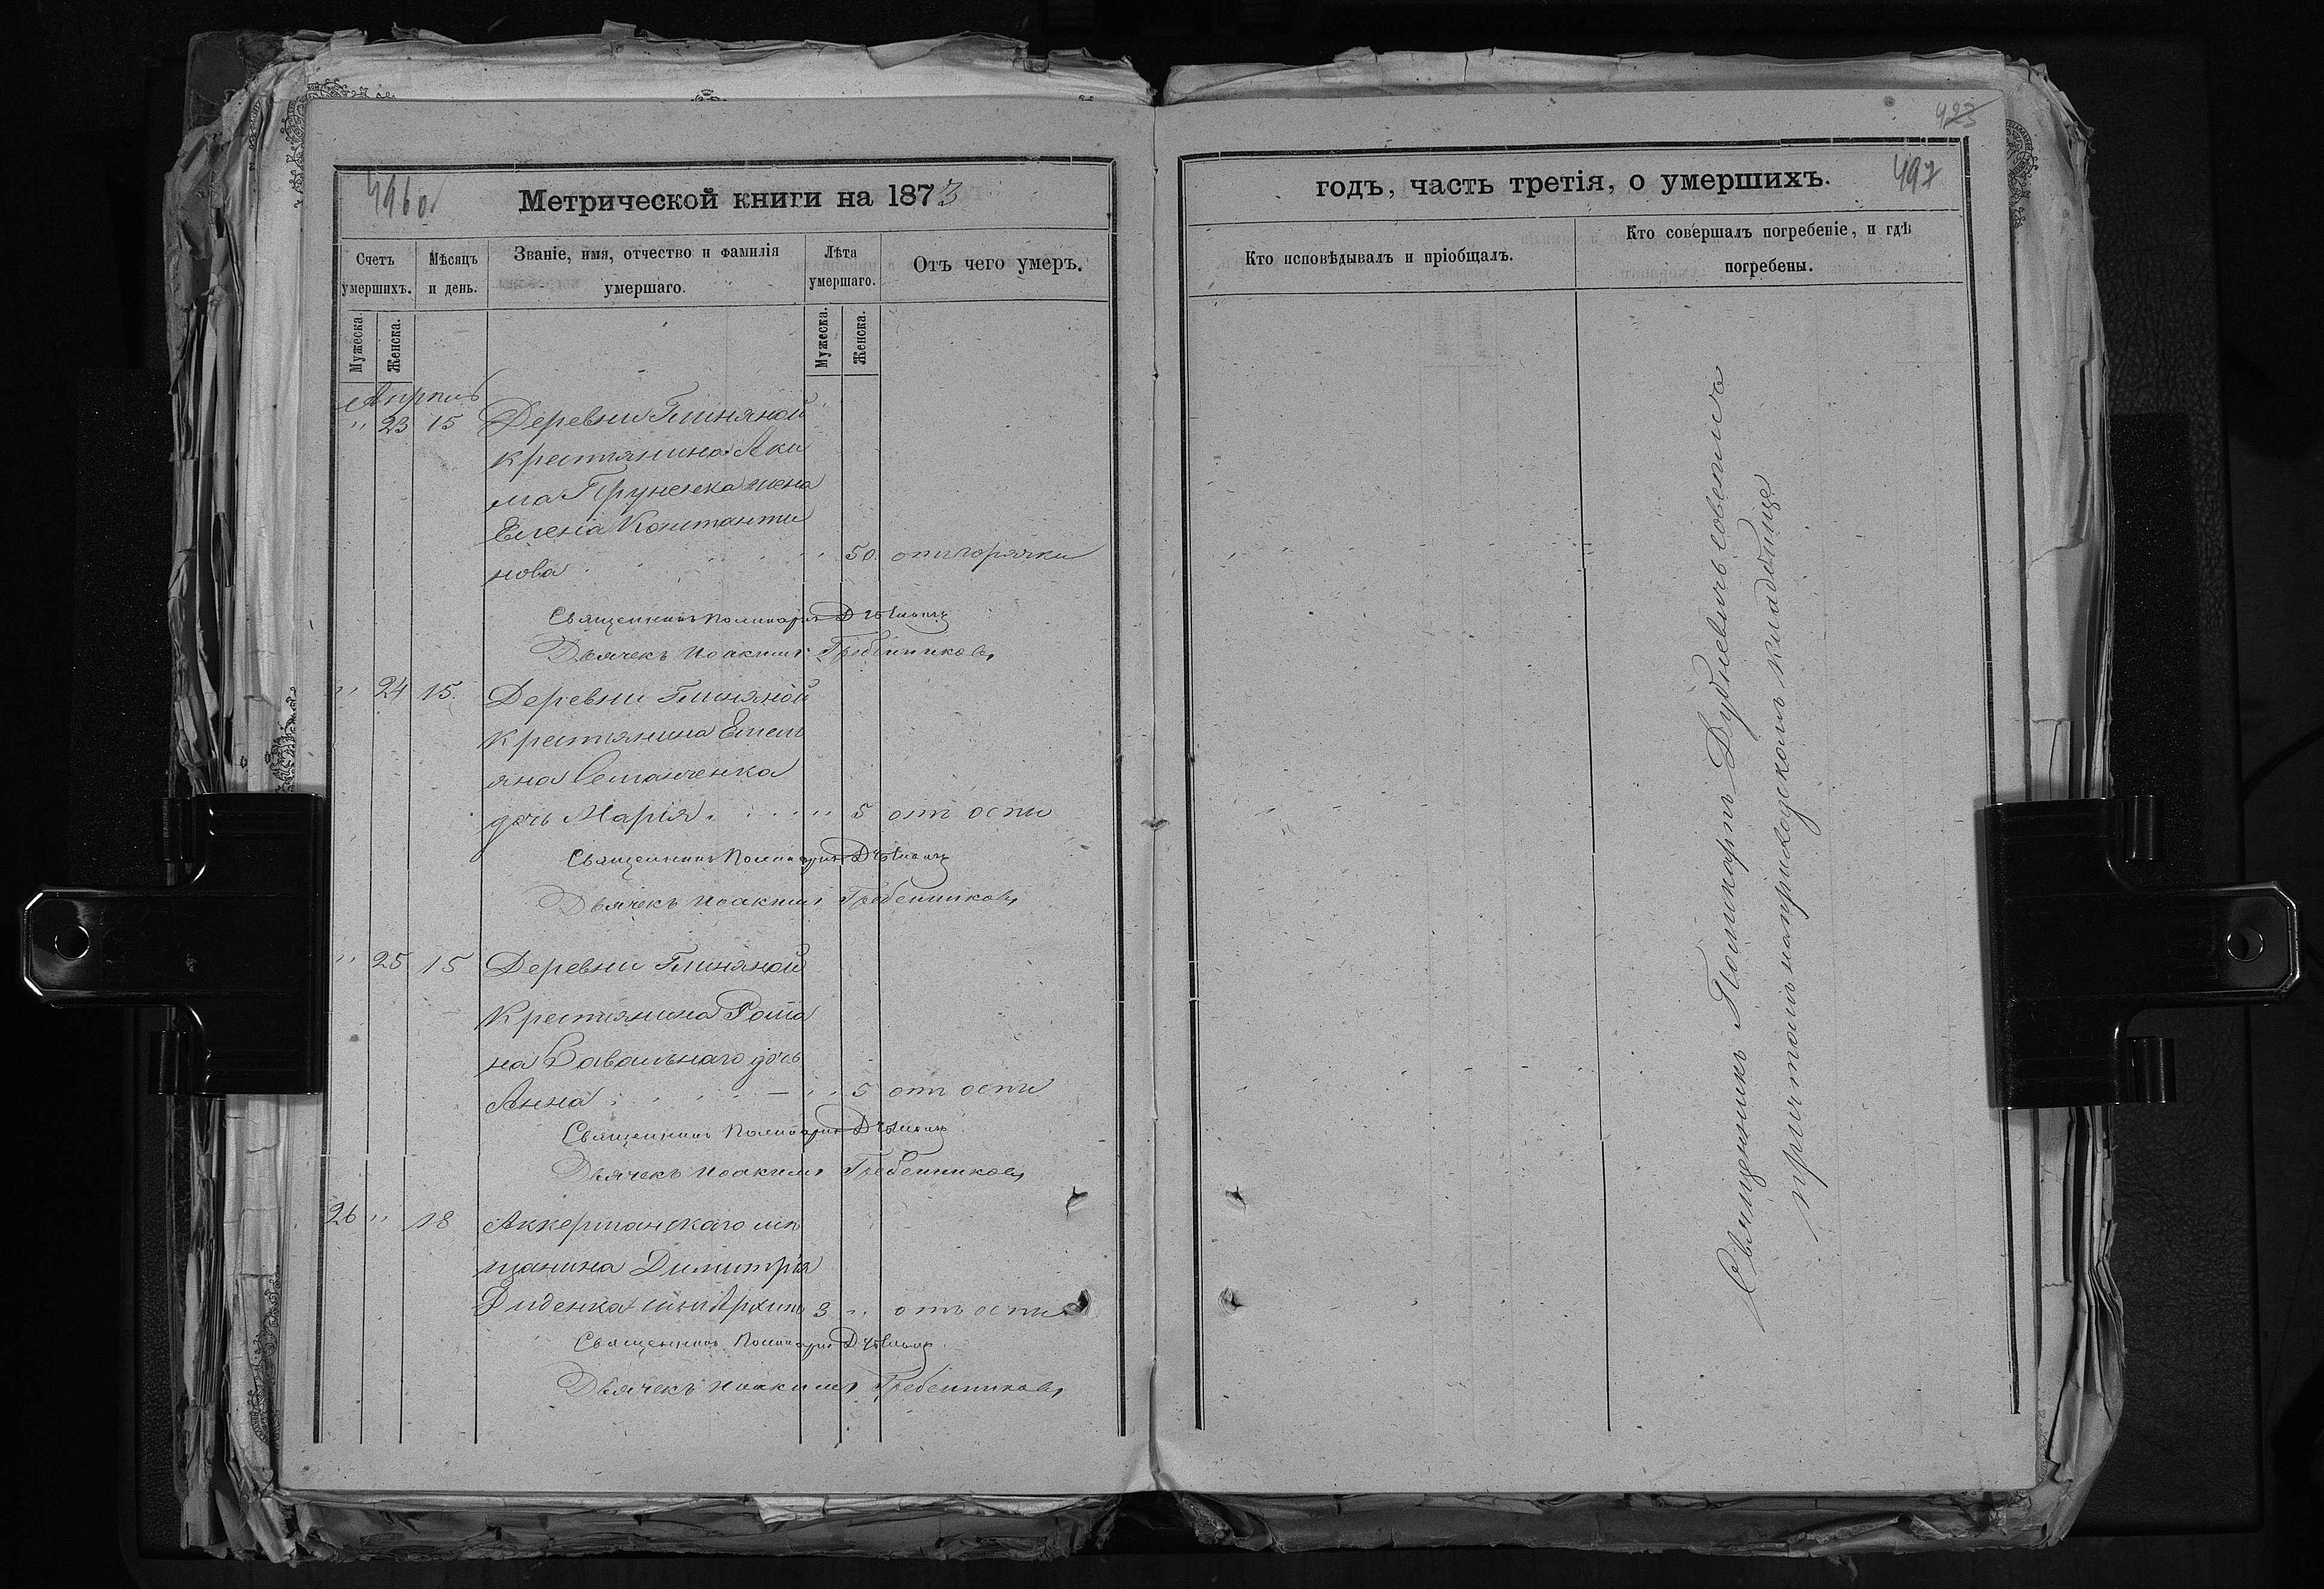 496 об
Метрической книги на 1873
Счетъ умершихъ.
Мѣсяцъ и день.
Званіе, имя, отчество и фамилія умершаго.
Лѣта умершаго.
Отъ чего умеръ.
Мужеска.
Женска.
Мужеска.
Женска.
Апрѣль
" 23 15 Деревни Глиняной
крестьянина Аки
ма жена
Елена Константи
нова " 50. отъ горячки
Священникъ Поликарпъ Дубневичъ
Дьячекъ Иоакимъ Гребенниковъ
" 24 15. Деревни Глиняной
крестьянина Емель
яна Семанченка
дочь Марія " 5 отъ оспы
Священникъ Поликарпъ Дубневичъ
Дьячекъ Иоакимъ Гребенниковъ
" 25 15 Деревни Глиняной
Крестьянина Рома
на дочь
Анна " 5 отъ оспы
Священникъ Поликарпъ Дубневичъ
Дьячекъ Иоакимъ Гребенниковъ
26 " 18 Аккерманскаго мѣ
щанина Димитрія
Диденка сынъ Архипъ 3 " отъ оспы
Священникъ Поликарпъ Дубневичъ
Дьячекъ Иоакимъ Гребенниковъ
423
годъ, часть третія, о умершихъ.
497
Кто исповѣдывалъ и пріобщалъ.
Кто совершалъ погребеніе, и гдѣ погребены.
Священникъ Поликарпъ Дубневичъ совмѣстно
причтомъ на приходскомъ кладбищѣ